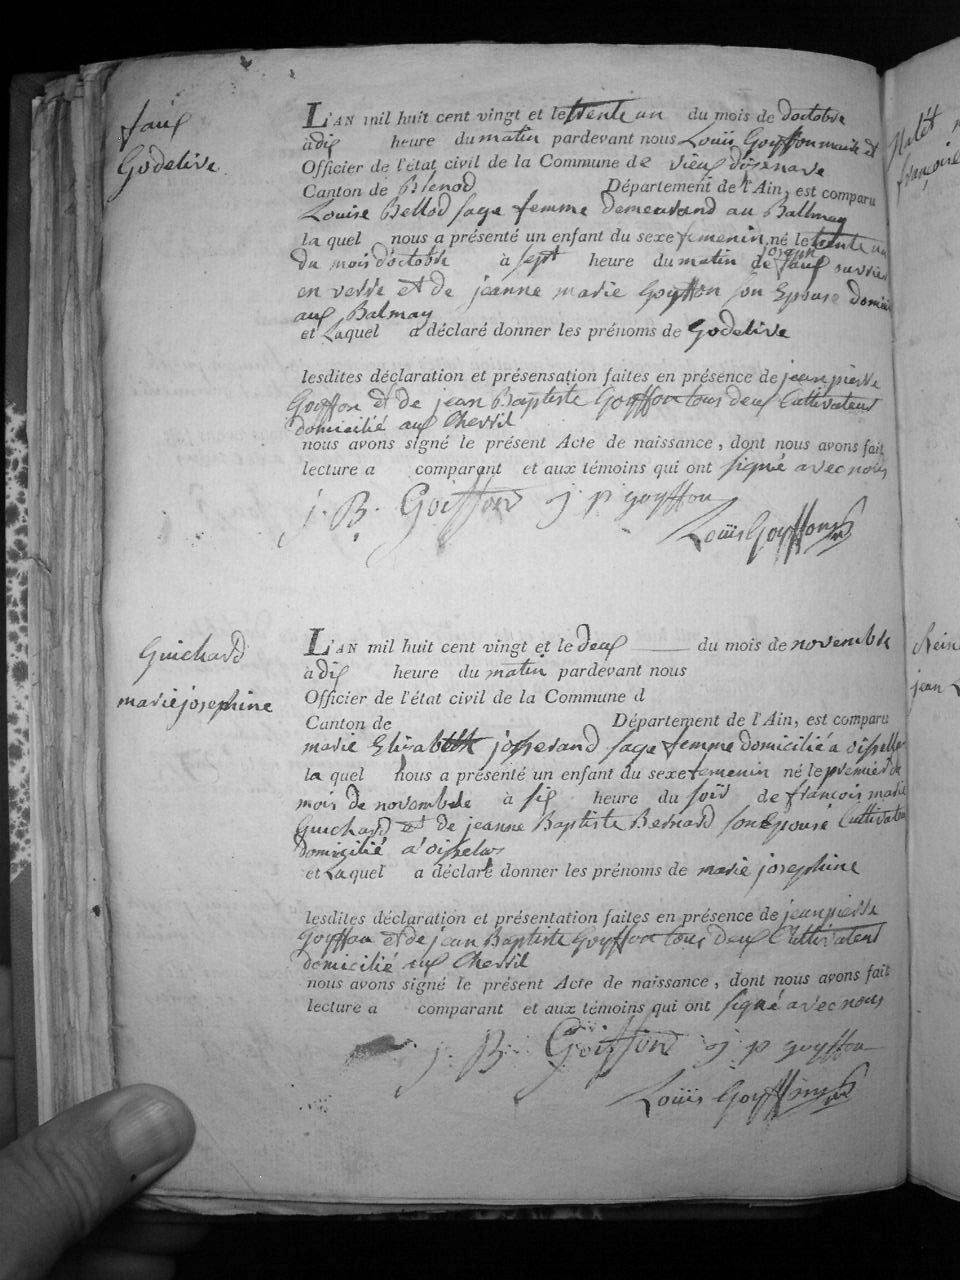 faux
Godelive
L'AN mil huit cent vingt et le trente un du mois de d'octobre
à dix heure du matin pardevant nous Louis Goyffon maire et
Officier de l'état civil de la Commune de vieux d'izenave
Canton de Brénod Département de l'Ain, est comparu
Louise Bellod sage femme demeurand au Ballmay
la quel nous a présenté un enfant du sexe femenin né le trente un
du mois d'octobre à sept heure du matin de joseph faux ouvrier
en verre et de jeanne marie Goyffon son Epouse domicié
aux Balmay
et Laquel a déclaré donner les prénoms de Godelive
lesdites déclaration et présensation faites en présence de jean pierre
Goyffon et de jean Baptiste Goyffon tous deux Cultivateur
domicilié aux Chevril
nous avons signé le présent Acte de naissance, dont nous avons fait
lecture a comparant et aux témoins qui ont signé avec nous
j. B. Goiffon j p goyffon
Louis Goyffon
Guichard
marie josephine
L'AN mil huit cent vingt et le deux du mois de novembre
à dix heure du matin pardevant nous
Officier de l'état civil de la Commune d
Canton de Département de l'Ain, est comparu
marie Elizabeth josserand sage femme domicilié a oisselle
la quel nous a présenté un enfant du sexe femenin né le premier du
mois de novembre à six heure du soir de francois marie
Guichard et de jeanne Baptiste Bernard son Epouse Cultivateur
domicilié a oisselas
et Laquel a déclaré donner les prénoms de marie josephine
lesdites déclaration et présentation faites en présence de jean pierre
Goyffon et de jean Baptiste Goyffon tous deux Cultivateur
domicilié aux Chevril
nous avons signé le présent Acte de naissance, dont nous avons fait
lecture a comparant et aux témoins qui ont signé avec nous
j. B. Goiffon j p goyffon
Louis Goyffon
françoise
jean